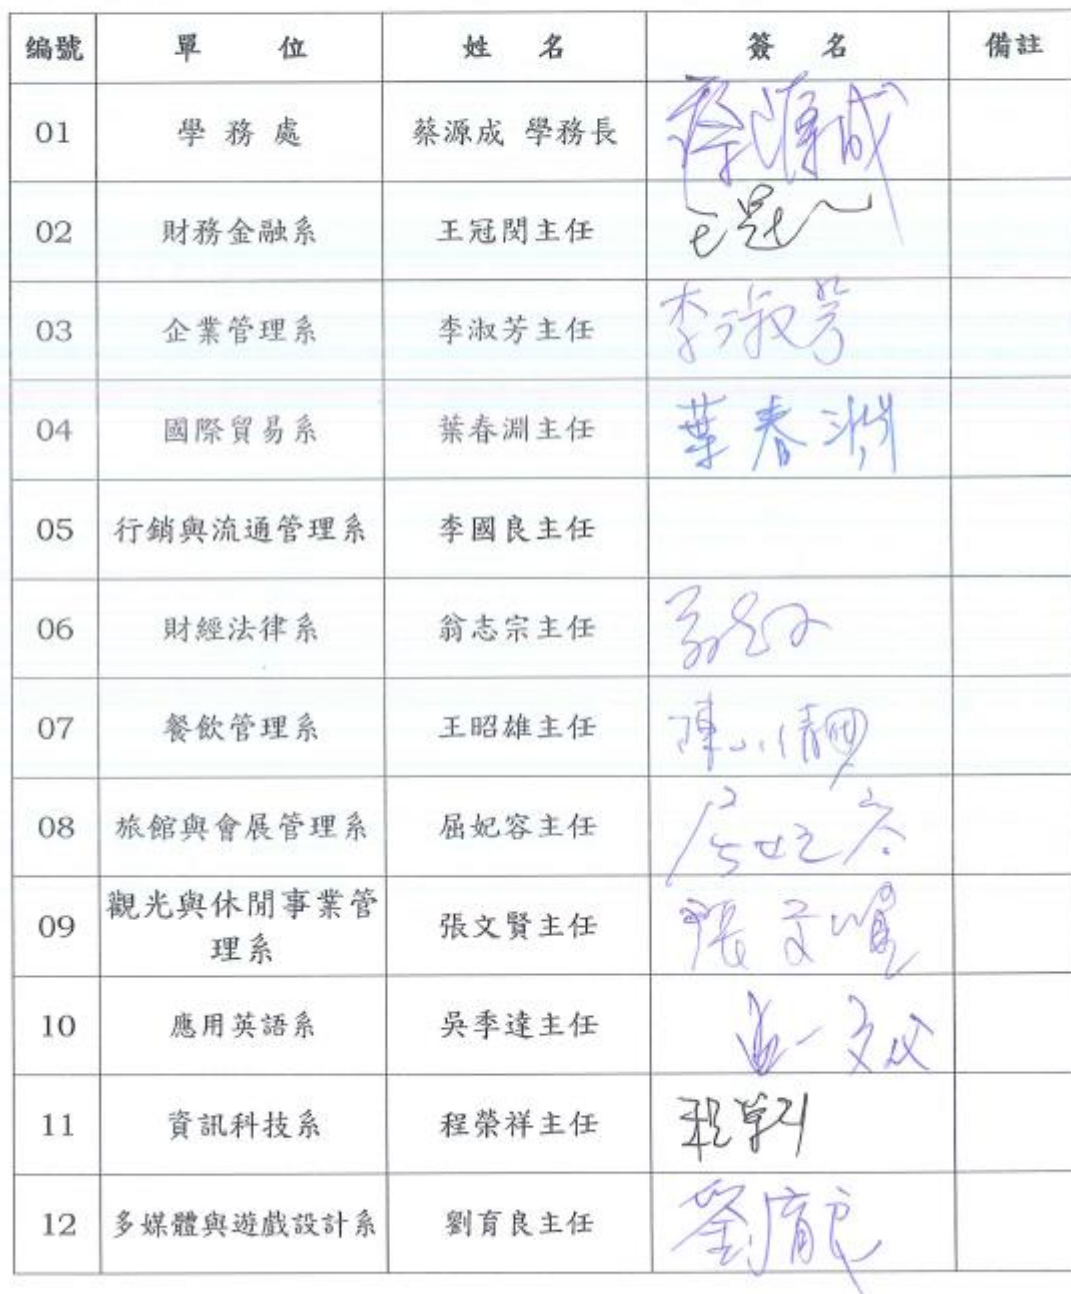 編號 單位 姓名 簽名 備註
01 學務處 蔡源成 學務長 蔡源成
02 財務金融系 王冠閔主任
03 企業管理系 李淑芳主任 李淑芳
04 國際貿易系 葉春淵主任 葉春淵
05 行銷與流通管理系 李國良主任
06 財經法律系 翁志宗主任
07 餐飲管理系 王昭雄主任
08 旅館與會展管理系 屈妃容主任 屈妃容
09 觀光與休閒事業管
理系 張文賢主任 張文賢
10 應用英語系 吳季達主任
11 資訊科技系 程榮祥主任
12 多媒體與遊戲設計系 劉育良主任 劉育良